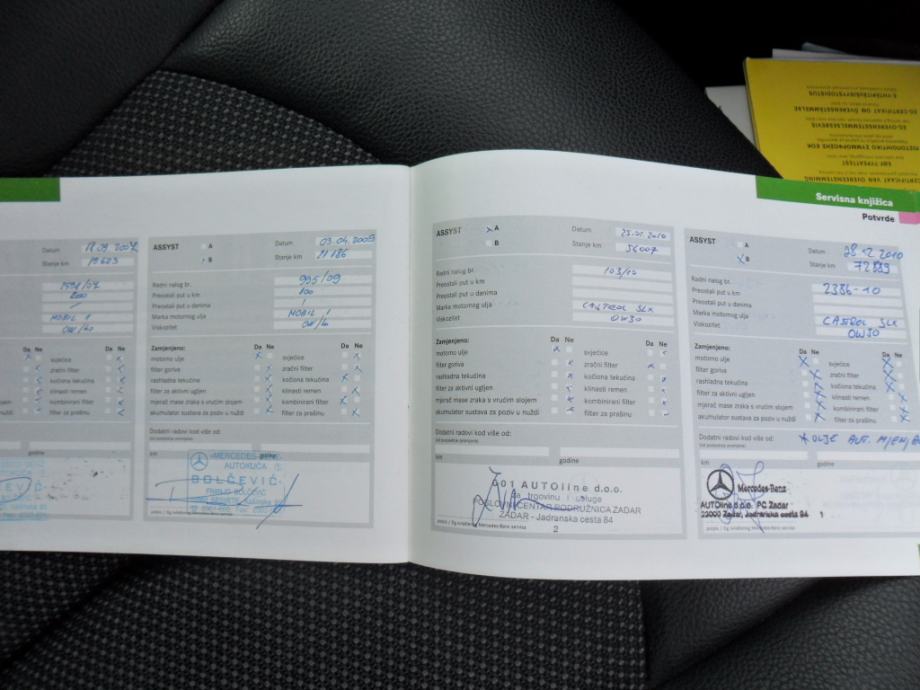 Servisna knjižica
Potvrde
Datum
Stanje km
MOBIL 1
0W/40
Da Ne
ASSYST A
B
Datum 03.04.2009
Stanje km 21 186
Radni nalog br. 995/09
Preostali put u km 100
Preostali put u danima /
Marka motornog ulja MOBIL 1
Viskozitet 0W/40
Zamjenjeno: Da Ne Da Ne
motorno ulje svjećice
filter goriva zračni filter
rashladna tekućina kočiona tekućina
filter za aktivni ugljen klinasti remen
mjerač mase zraka s vrućim slojem kombinirani filter
akumulator sustava za poziv u nuždi filter za prašinu
Dodatni radovi kod više od:
km godine
MERCEDES-BENZ
AUTOKUĆA
BOLČEVIĆ
ASSYST A
B
Datum 25.01.2010
Stanje km 56007
Radni nalog br. 103/10
Preostali put u km
Preostali put u danima
Marka motornog ulja CASTROL SLX
Viskozitet 0W30
Zamjenjeno: Da Ne Da Ne
motorno ulje svjećice
filter goriva zračni filter
rashladna tekućina kočiona tekućina
filter za aktivni ugljen klinasti remen
mjerač mase zraka s vrućim slojem kombinirani filter
akumulator sustava za poziv u nuždi filter za prašinu
Dodatni radovi kod više od:
km godine
001 AUTOline d.o.o.
za trgovinu i usluge
POSLOVNI CENTAR PODRUŽNICA ZADAR
ZADAR - Jadranska cesta 84
2
ASSYST A
B
Datum 28 12 2010
Stanje km 72889
Radni nalog br. 2386-10
Preostali put u km
Preostali put u danima
Marka motornog ulja CASTROL SLX
Viskozitet 0W30
Zamjenjeno: Da Ne Da Ne
motorno ulje svjećice
filter goriva zračni filter
rashladna tekućina kočiona tekućina
filter za aktivni ugljen klinasti remen
mjerač mase zraka s vrućim slojem kombinirani filter
akumulator sustava za poziv u nuždi filter za prašinu
Dodatni radovi kod više od: *ULJE AUT. MJENJ
km godine
Mercedes-Benz
AUTOline d.o.o. PC Zadar
23000 Zadar, Jadranska cesta 84 1